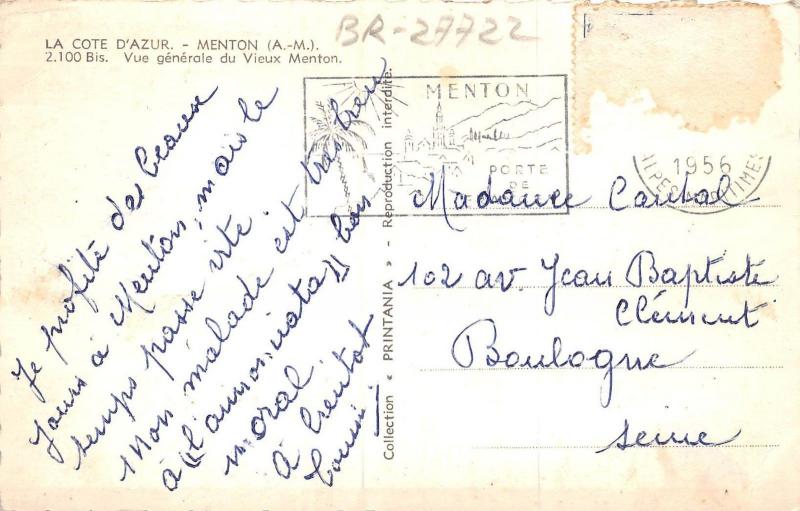 LA COTE D'AZUR. - MENTON (A.-M.).
2.100 Bis. Vue générale du Vieux Menton.
BR-27722
Je profite des beaux
jours à Menton, mais le
temps passe vite.
Mon malade est très bien
à "l'annonciata" bon
moral.
à bientot
Collection « PRINTANIA » - Reproduction interdite.
MENTON
PORTE
DE
1956
Madame Cantal
102 av. Jean Baptiste
Clément
Boulogne
Seine